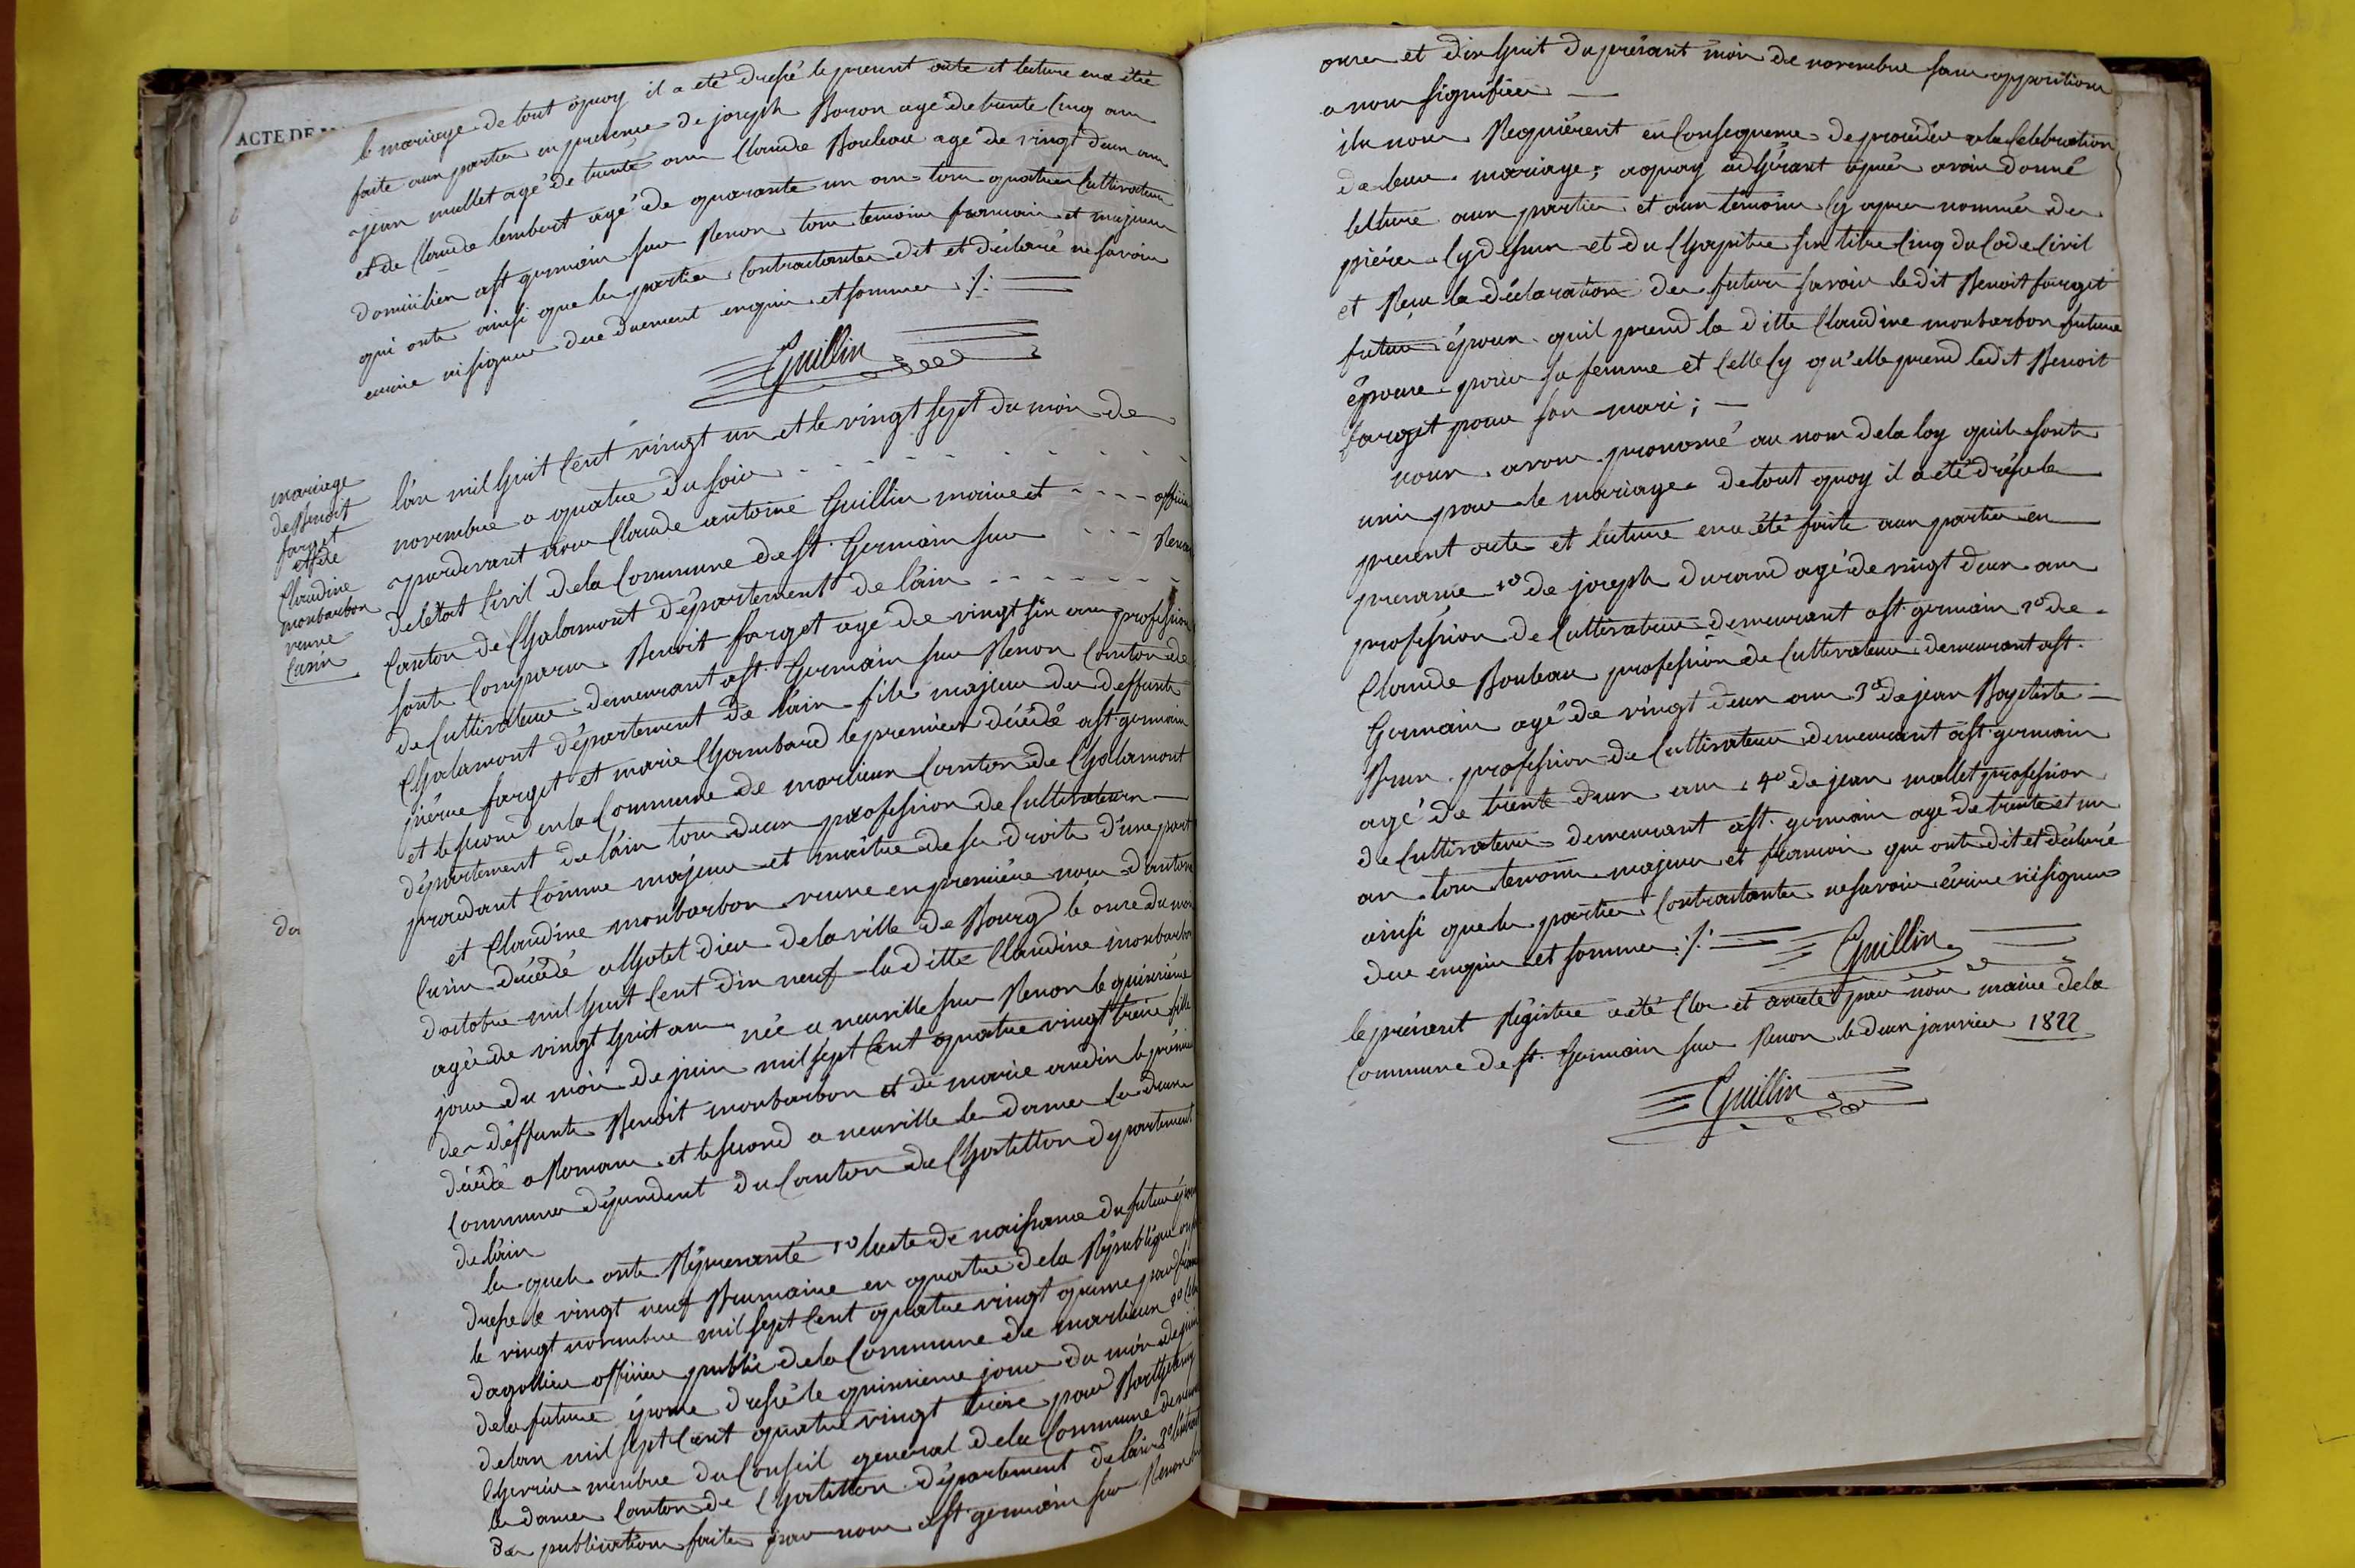 ACTE DE
le mariage de tout quoy il a été dressé le present acte et lecture en a été
faite aux parties en presence de joseph Boron agé de trente cinq ans
jean mullet agé de trente ans Claude Bouleau agé de vingt deux ans
et de Claude lembert agé de quarante un ans tous quatre cultivateurs
domiciliers a st germain sur Renon tous temoins francais et majeurs
qui ont ainsi que les parties contractantes dit et déclaré ne savoir
ecrire ni signer de ce duement enquis et sommes ./.
Guillin
mariage
de Benoit
farget
et de
Claudine
monbarbon
veuve
Cusin
l'an mil huit cent vingt un et le vingt sept du mois de
novembre a quatre du soir
pardevant nous Claude antoine Guillin maire et officier
de létat Civil de la Commune de st. Germain sur Renon
Canton de Chalamont département de l'ain
sont comparus Benoit farget agé de vingt six ans profession
de cultivateur demeurant a st. Germain sur Renon Canton de
Chalamont département de l'ain fils majeur des deffunts
pierre farget et marie Chambard le premier décédé a st. germain
et le second en la Commune de marlieux Canton de Chalamont
département de l'ain tous deux profession de cultivateurs
procedant comme majeur et maître de ses droits d'une part
et Claudine monbarbon veuve en première noces d'antoine
Cusin décédé a lhotel dieu de la ville de Bourg le onze du mois
d'octobre mil huit cent dix neuf la ditte Claudine monbarbon
agée de vingt huit ans née a neuville sur Renon le quinzième
jour du mois de juin mil sept cent quatre vingt treize fille
des deffunts Benoit monbarbon et de marie audin le premier
décédé a Romans et le second a neuville les dames les deux
Communes dépendent du Canton de Chatillon departement
de l'ain
les quels ont Répresanté 1º lacte de naissance du futur époux
dressé le vingt neuf Brumaire en quatre de la République ou
le vingt novembre mil sept cent quatre vingt quinze par
dagollier officier public de la Commune de marlieux 2º
de la future épouse dressé le quinzieme jour du mois de juin
de lan mil sept cent quatre vingt treize par Barthelemy
Cherrier membre du Conseil general de la Commune de neuville
les dames Canton de Chatillon département de l'ain 3º l'extrait
des publications faites par nous a st. germain sur Renon les
onze et dix huit du présant mois de novembre sans opposition
a nous signifiée
ils nous Requièrent en Consequence de proceder a la Celebration
de leur mariage; a quoy adhérant après avoir donné
lecture aux parties et aux témoins cy apres nommés des
pièces cy dessus et du Chapitre six titre cinq du Code Civil
et Reçu la déclaration des futurs savoir le dit Benoit farget
futur époux quil prend la ditte Claudine monbarbon future
épouse pour sa femme et Celle cy qu'elle prend ledit Benoit
farget pour son mari;
nous avons prononcé au nom de la loy quils sont
unis par le mariage de tout quoy il a été dressé le
present acte et lecture en a été faite aux parties en
presence 1º de joseph durand agé de vingt deux ans
profession de cultivateur demeurant a st. germain 2º de
Claude Bouleau profession de cultivateur demeurant a st.
Germain agé de vingt deux ans 3º de jean Baptiste
Brun profession de cultivateur demeurant a st. germain
agé de trente deux ans 4º de jean mollet profession
de cultivateur demeurant a st. germain agé de trente et un
an tous temoins majeurs et francois qui ont dit et déclaré
ainsi que les parties contractantes ne savoir écrire ni signer
de ce enquis et sommes ./.
Guillin
le présent Régistre a été clos et arreté par nous maire de la
Commune de st. Germain sur Renon le deux janvier 1822
Guillin